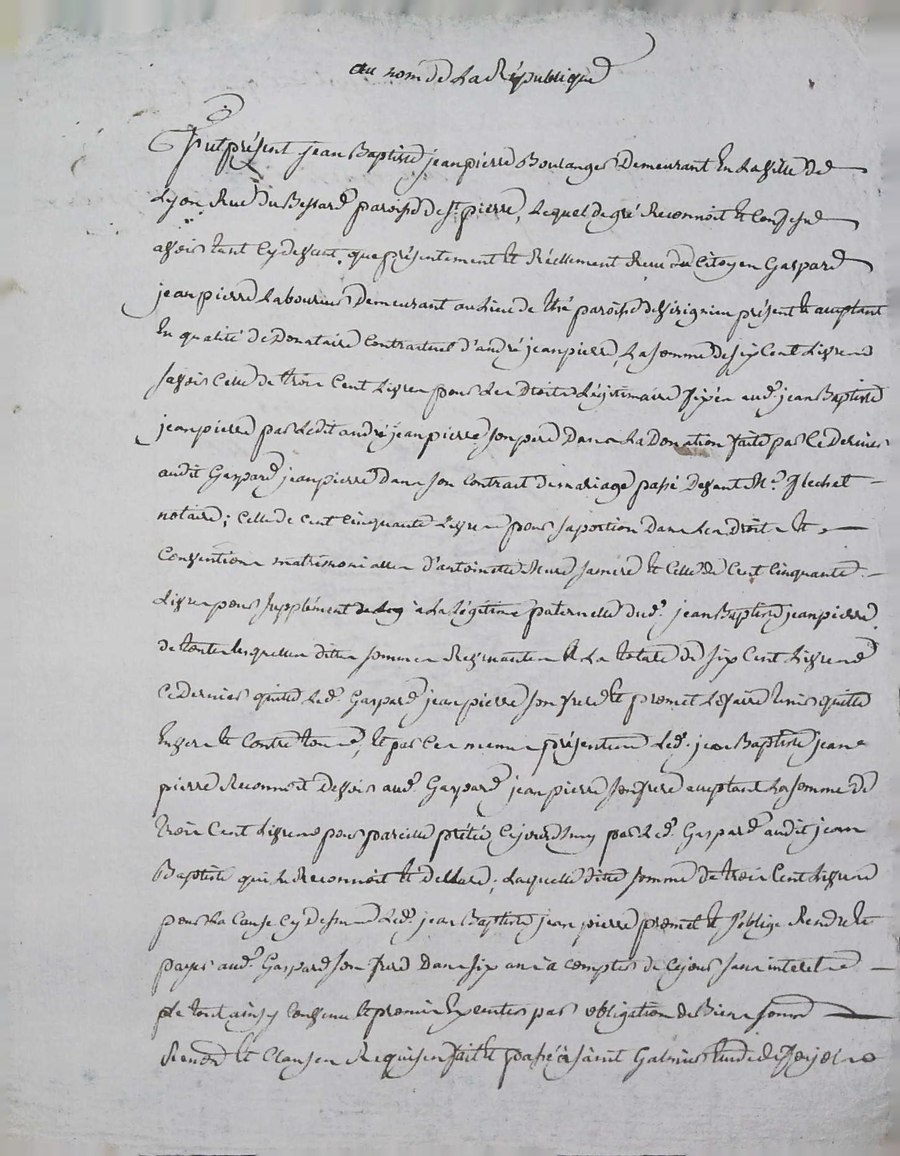 au nom de La République
Fut présent jean Baptiste jeanpierre Boulanger Demeurant En La Ville De
Lyon Rue Du Bessard paroisse de St. pierre, Lequel de gré Reconnoit Et Confesse
avoir tant Cy devant, que présentement Et Réellement Recu du Citoyen Gaspard
jeanpierre Laboureur Demeurant au Lieu de paroisse de Vérignieu présent Et acceptant
En qualité de Donataire Contractuel d'andré jeanpierre, La somme de six Cent Livres
savoir Celle de trois Cent Livres pour Les Droits Légitimaire fixés aud. jean Baptiste
jeanpierre par Ledit andré jeanpierre son pere Dans La Donation faite par Ce Dernier
audit Gaspard jeanpierre Dans son Contrat de mariage passé Devant Me. flechet
notaire; Celle de cent Cinquante Livres pour sa portion Dans Les Droits Et
Conventions matrimonialles d'antoinette sa mere Et Celle de Cent Cinquante
Livres pour supplément a La Légitime paternelle dud. jean Baptiste jeanpierre
de toutes Lesquelles dittes sommes Revenantes A La totale de six Cent Livres
Ce Dernier quitte Led. Gaspard jeanpierre son frere Et promet Le faire tenir quitte
Envers Et Contre tous, Et par Ces mêmes présentes Led. jean Baptiste jean
pierre Reconnoit Devoir aud. Gaspard jeanpierre son frere acceptant La somme de
trois Cent Livres pour pareille prêtée Cejourd'huy par Led. Gaspard audit jean
Baptiste qui Le Reconnoit Et Déclare, Laquelle ditte somme de trois Cent Livres
pour La Cause Cy Dessus Led. jean Baptiste jeanpierre promet Et s'oblige Rendre Et
payer aud. Gaspard son frere Dans six ans a compter de Ce jour sans interets
Le tout ainsy Convenu Et promis Executer par obligation de Biens
Renond. Et Clauses Requises fait Et passé à saint Galmier Etude